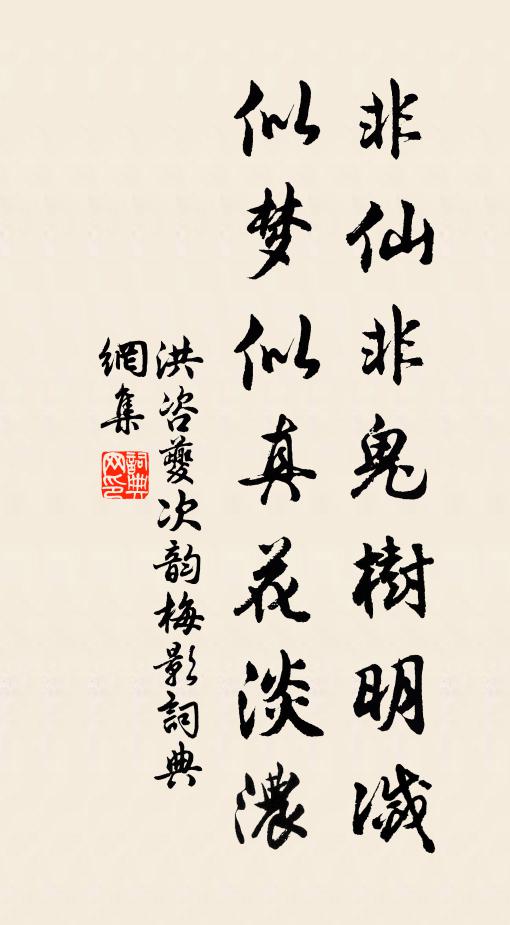 非仙非鬼樹明滅
似梦似真花淡濃
洪咨夔次韵梅影詞典
網集
詞典网印